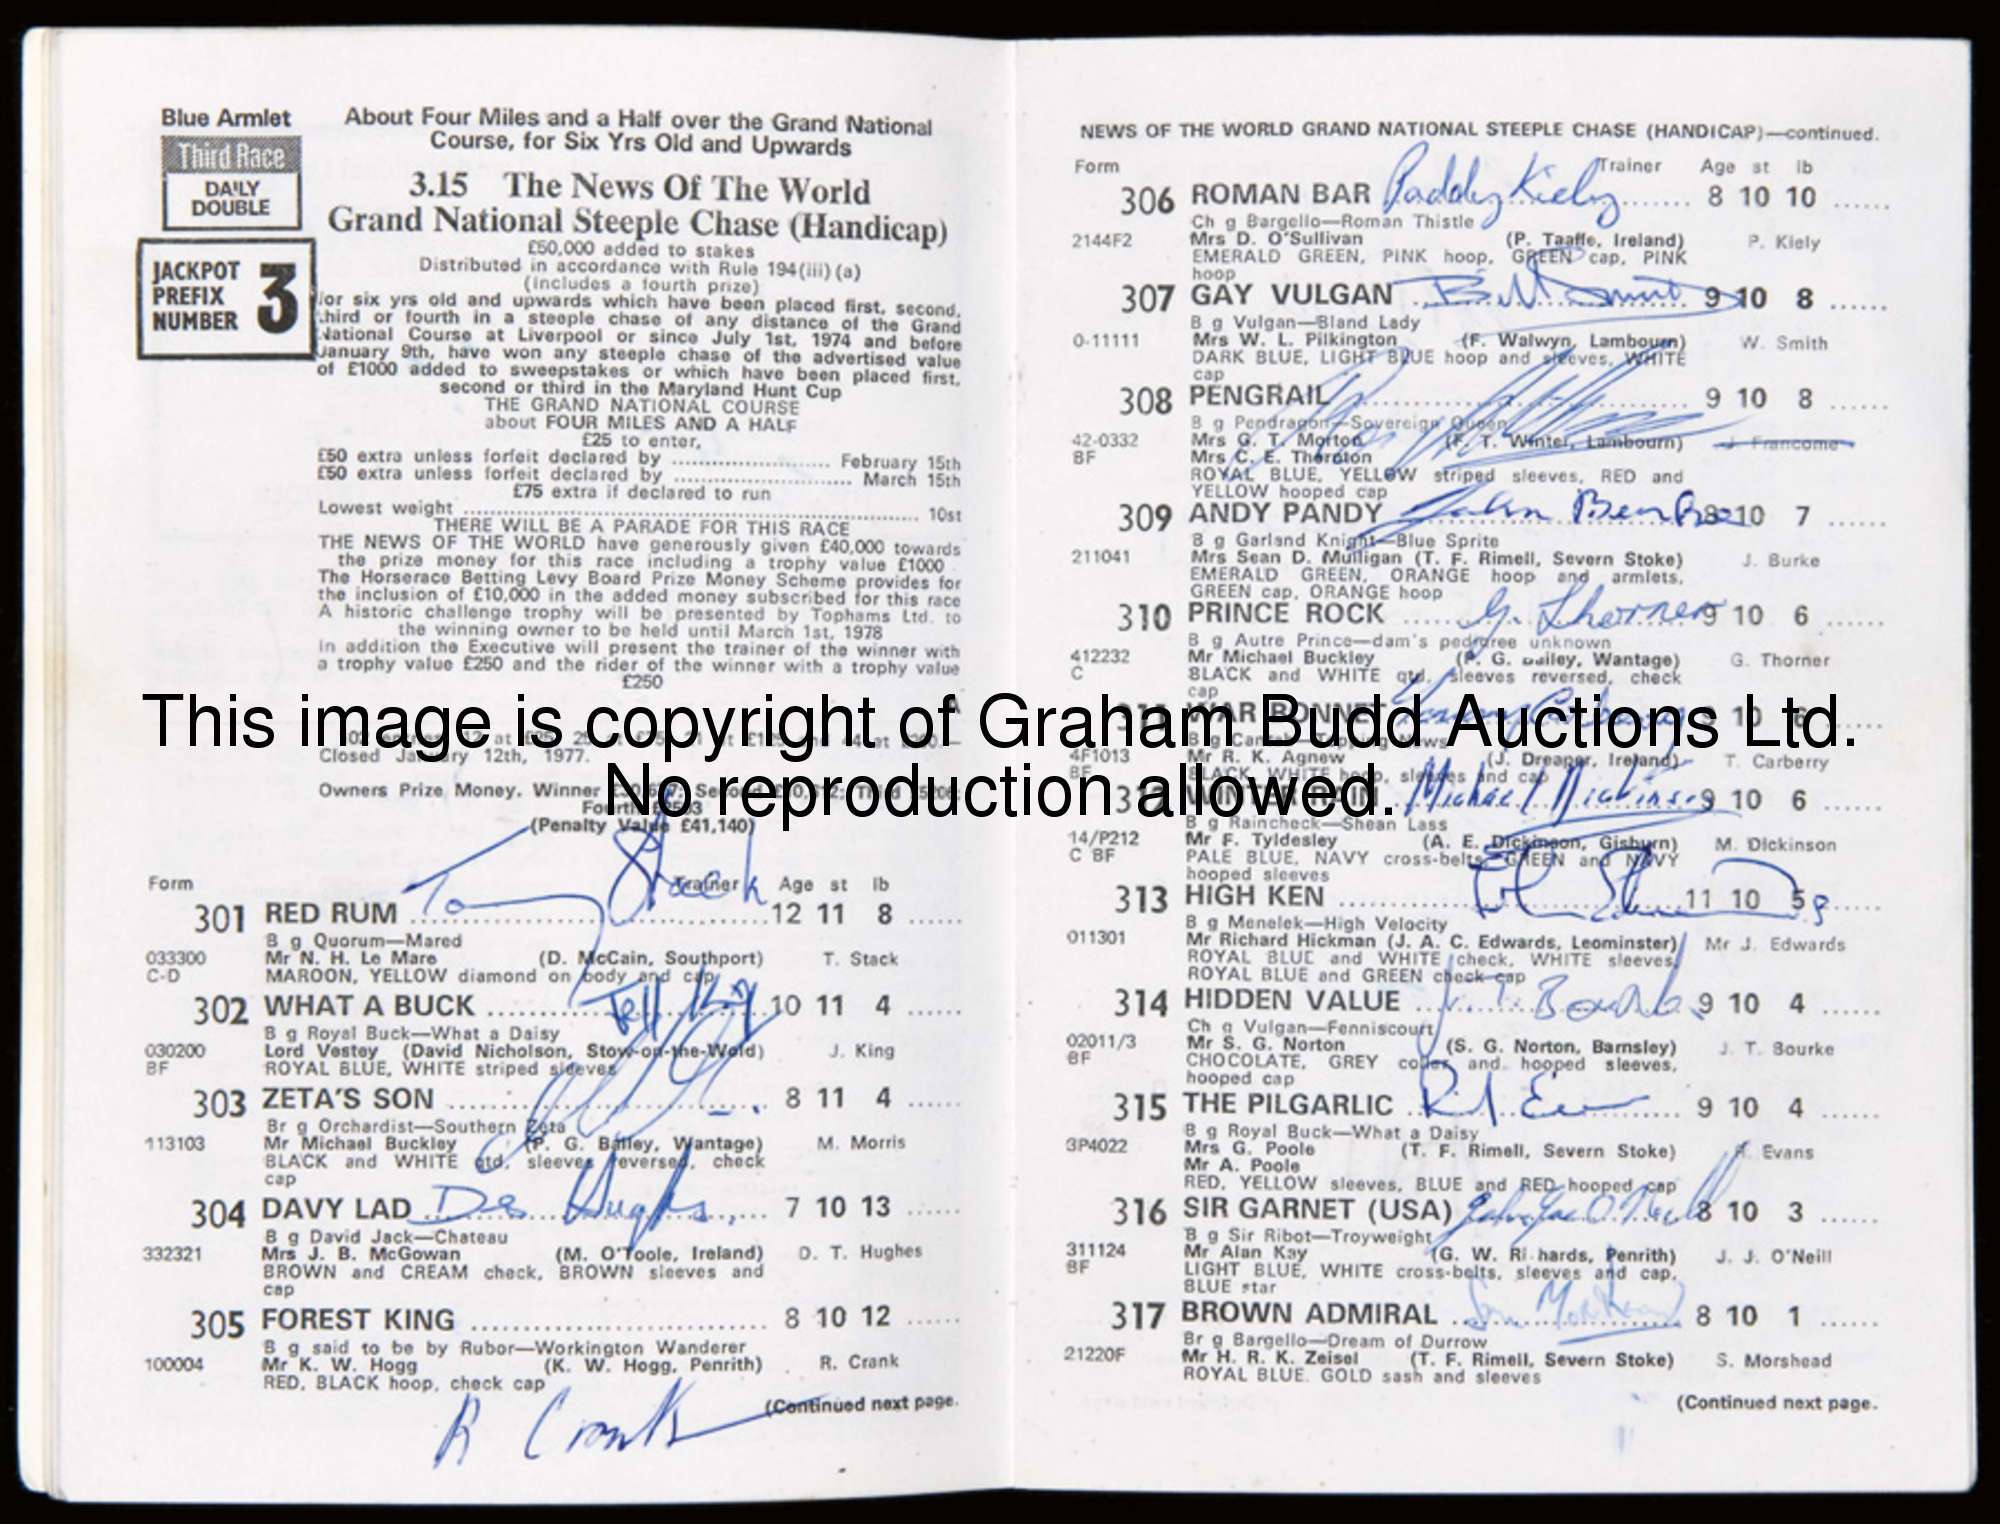 Blue Armlet
Third Race
DAILY
DOUBLE
JACKPOT
PREFIX
NUMBER 3
About Four Miles and a Half over the Grand National
Course, for Six Yrs Old and Upwards
3.15 The News Of The World
Grand National Steeple Chase (Handicap)
£50,000 added to stakes
Distributed in accordance with Rule 194(iii)(a)
(includes a fourth prize)
for six yrs old and upwards which have been placed first, second,
third or fourth in a steeple chase of any distance of the Grand
National Course at Liverpool or since July 1st, 1974 and before
January 9th, have won any steeple chase of the advertised value
of £1000 added to sweepstakes or which have been placed first,
second or third in the Maryland Hunt Cup
THE GRAND NATIONAL COURSE
about FOUR MILES AND A HALF
£25 to enter,
£50 extra unless forfeit declared by ........................ February 15th
£50 extra unless forfeit declared by ........................ March 15th
£75 extra if declared to run
Lowest weight ........................ 10st
THERE WILL BE A PARADE FOR THIS RACE
THE NEWS OF THE WORLD have generously given £40,000 towards
the prize money for this race including a trophy value £1000
The Horserace Betting Levy Board Prize Money Scheme provides for
the inclusion of £10,000 in the added money subscribed for this race
A historic challenge trophy will be presented by Tophams Ltd. to
the winning owner to be held until March 1st, 1978
In addition the Executive will present the trainer of the winner with
a trophy value £250 and the rider of the winner with a trophy value
£250
This image is copyright of Graham Budd Auctions Ltd.
No reproduction allowed.
Closed January 12th, 1977.
Owners Prize Money. Winner
Fourth
(Penalty Value £41,140)
Tommy Stack
Form Trainer Age st lb
301 RED RUM ........ 12 11 8 ......
B g Quorum—Mared
033300 Mr N. H. Le Mare (D. McCain, Southport) T. Stack
C-D MAROON, YELLOW diamond on body and cap
302 WHAT A BUCK ........ Jeff King 10 11 4 ......
B g Royal Buck—What a Daisy
030200 Lord Vestey (David Nicholson, Stow-on-the-Wold) J. King
BF ROYAL BLUE, WHITE striped sleeves
303 ZETA'S SON ........ 8 11 4 ......
Br g Orchardist—Southern Zeta
113103 Mr Michael Buckley (P. G. Bailey, Wantage) M. Morris
BLACK and WHITE qtd, sleeves reversed, check
cap
304 DAVY LAD Des Hughes ........ 7 10 13 ......
B g David Jack—Chateau
332321 Mrs J. B. McGowan (M. O'Toole, Ireland) D. T. Hughes
BROWN and CREAM check, BROWN sleeves and
cap
305 FOREST KING ........ 8 10 12 ......
B g said to be by Rubor—Workington Wanderer
100004 Mr K. W. Hogg (K. W. Hogg, Penrith) R. Crank
RED, BLACK hoop, check cap
(Continued next page.
R Crank
NEWS OF THE WORLD GRAND NATIONAL STEEPLE CHASE (HANDICAP)—continued.
Form Trainer Age st lb
306 ROMAN BAR Paddy Kiely ...... 8 10 10 ......
Ch g Bargello—Roman Thistle
2144F2 Mrs D. O'Sullivan (P. Taaffe, Ireland) P. Kiely
EMERALD GREEN, PINK hoop, GREEN cap, PINK
hoop
307 GAY VULGAN ...... 9 10 8 ......
B g Vulgan—Bland Lady
0-11111 Mrs W. L. Pilkington (F. Walwyn, Lambourn) W. Smith
DARK BLUE, LIGHT BLUE hoop and sleeves, WHITE
cap
308 PENGRAIL ...... 9 10 8 ......
B g Pendragon—Sovereign Queen
42-0332 Mrs G. T. Morton (F. T. Winter, Lambourn) J. Francome
BF Mrs C. E. Thornton
ROYAL BLUE, YELLOW striped sleeves, RED and
YELLOW hooped cap
309 ANDY PANDY John Burke 8 10 7 ......
B g Garland Knight—Blue Sprite
211041 Mrs Sean D. Mulligan (T. F. Rimell, Severn Stoke) J. Burke
EMERALD GREEN, ORANGE hoop and armlets,
GREEN cap, ORANGE hoop
310 PRINCE ROCK ...... G. Thorner 9 10 6 ......
B g Autre Prince—dam's pedigree unknown
412232 Mr Michael Buckley (P. G. Bailey, Wantage) G. Thorner
C BLACK and WHITE qtd, sleeves reversed, check
cap
311 WAR BONNET Tommy Carberry 9 10 6 ......
B g Canisbay—Topping News
4F1013 Mr R. K. Agnew (J. Dreaper, Ireland) T. Carberry
BF BLACK, WHITE hoop, sleeves and cap
312 WINTER RAIN Michael Dickinson 9 10 6 ......
B g Raincheck—Shean Lass
14/P212 Mr F. Tyldesley (A. E. Dickinson, Gisburn) M. Dickinson
C BF PALE BLUE, NAVY cross-belts, GREEN and NAVY
hooped sleeves
313 HIGH KEN ...... 11 10 5 ......
B g Menelek—High Velocity
011301 Mr Richard Hickman (J. A. C. Edwards, Leominster) Mr J. Edwards
ROYAL BLUE and WHITE check, WHITE sleeves,
ROYAL BLUE and GREEN check cap
314 HIDDEN VALUE ...... J. T. Bourke 9 10 4 ......
Ch g Vulgan—Fenniscourt
02011/3 Mr S. G. Norton (S. G. Norton, Barnsley) J. T. Bourke
BF CHOCOLATE, GREY collar and hooped sleeves,
hooped cap
315 THE PILGARLIC ...... 9 10 4 ......
B g Royal Buck—What a Daisy
3P4022 Mrs G. Poole (T. F. Rimell, Severn Stoke) R. Evans
Mr A. Poole
RED, YELLOW sleeves, BLUE and RED hooped cap
316 SIR GARNET (USA) John Joe O'Neill 8 10 3 ......
B g Sir Ribot—Troyweight
311124 Mr Alan Kay (G. W. Richards, Penrith) J. J. O'Neill
BF LIGHT BLUE, WHITE cross-belts, sleeves and cap,
BLUE star
317 BROWN ADMIRAL Sam Morshead 8 10 1 ......
Br g Bargello—Dream of Durrow
21220F Mr H. R. K. Zeisel (T. F. Rimell, Severn Stoke) S. Morshead
ROYAL BLUE. GOLD sash and sleeves
(Continued next page.